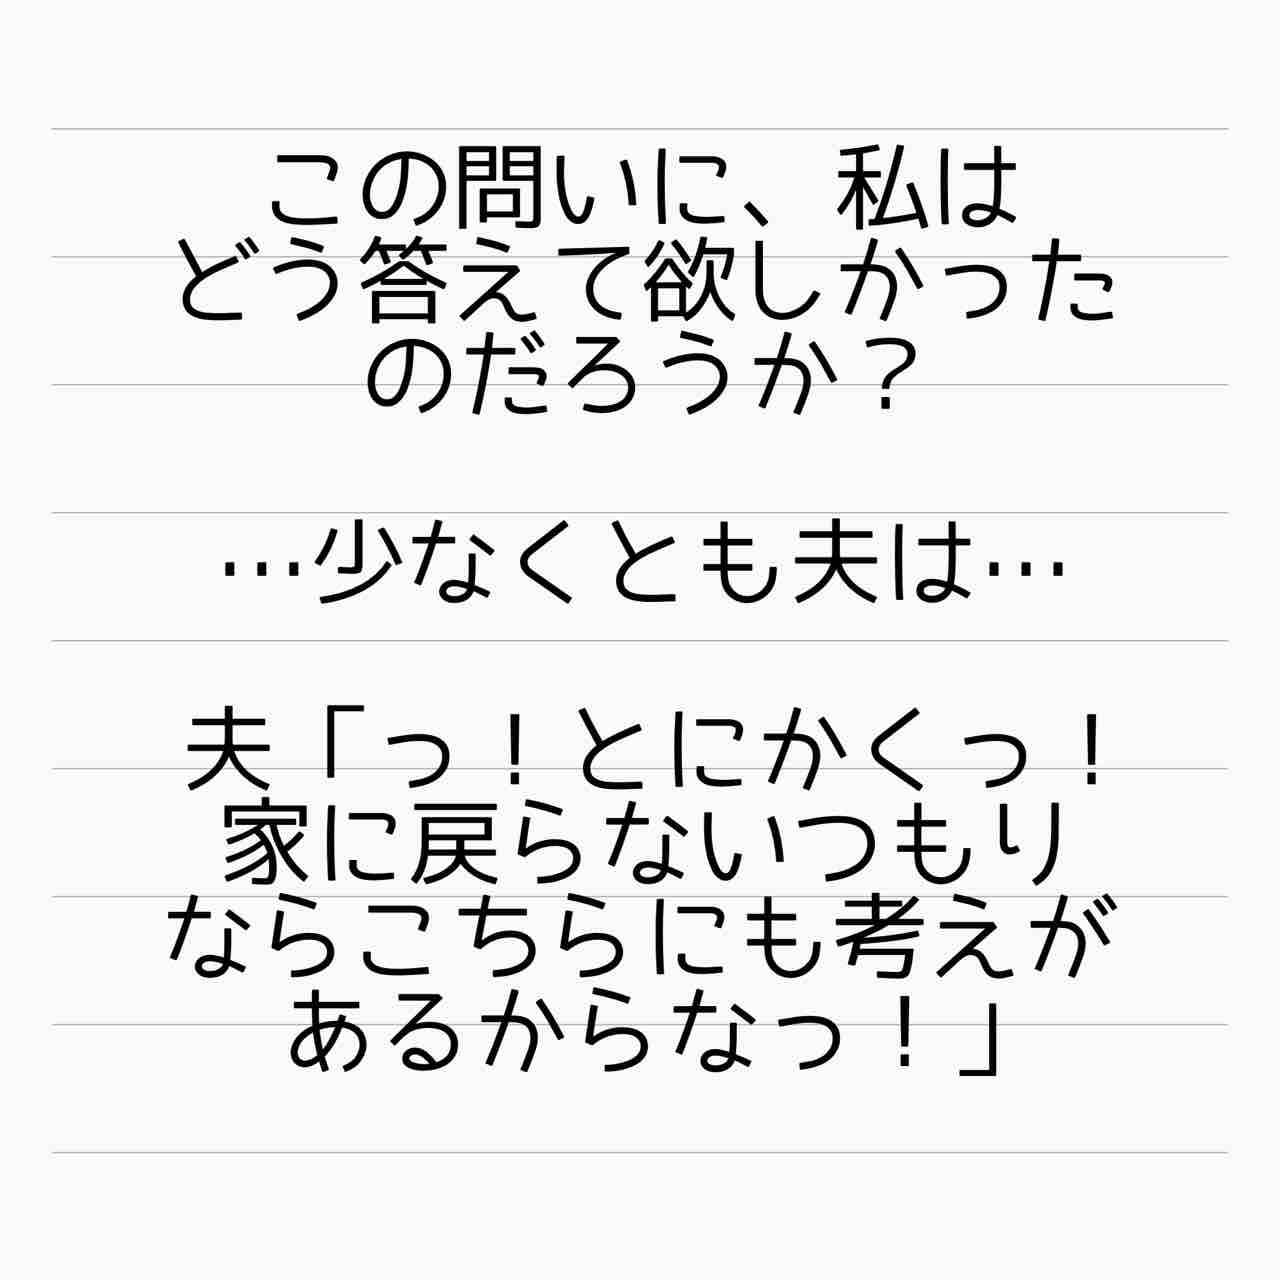 この問いに、私は
どう答えて欲しかった
のだろうか？
…少なくとも夫は…
夫「っ！とにかくっ！
家に戻らないつもり
ならこちらにも考えが
あるからなっ！」